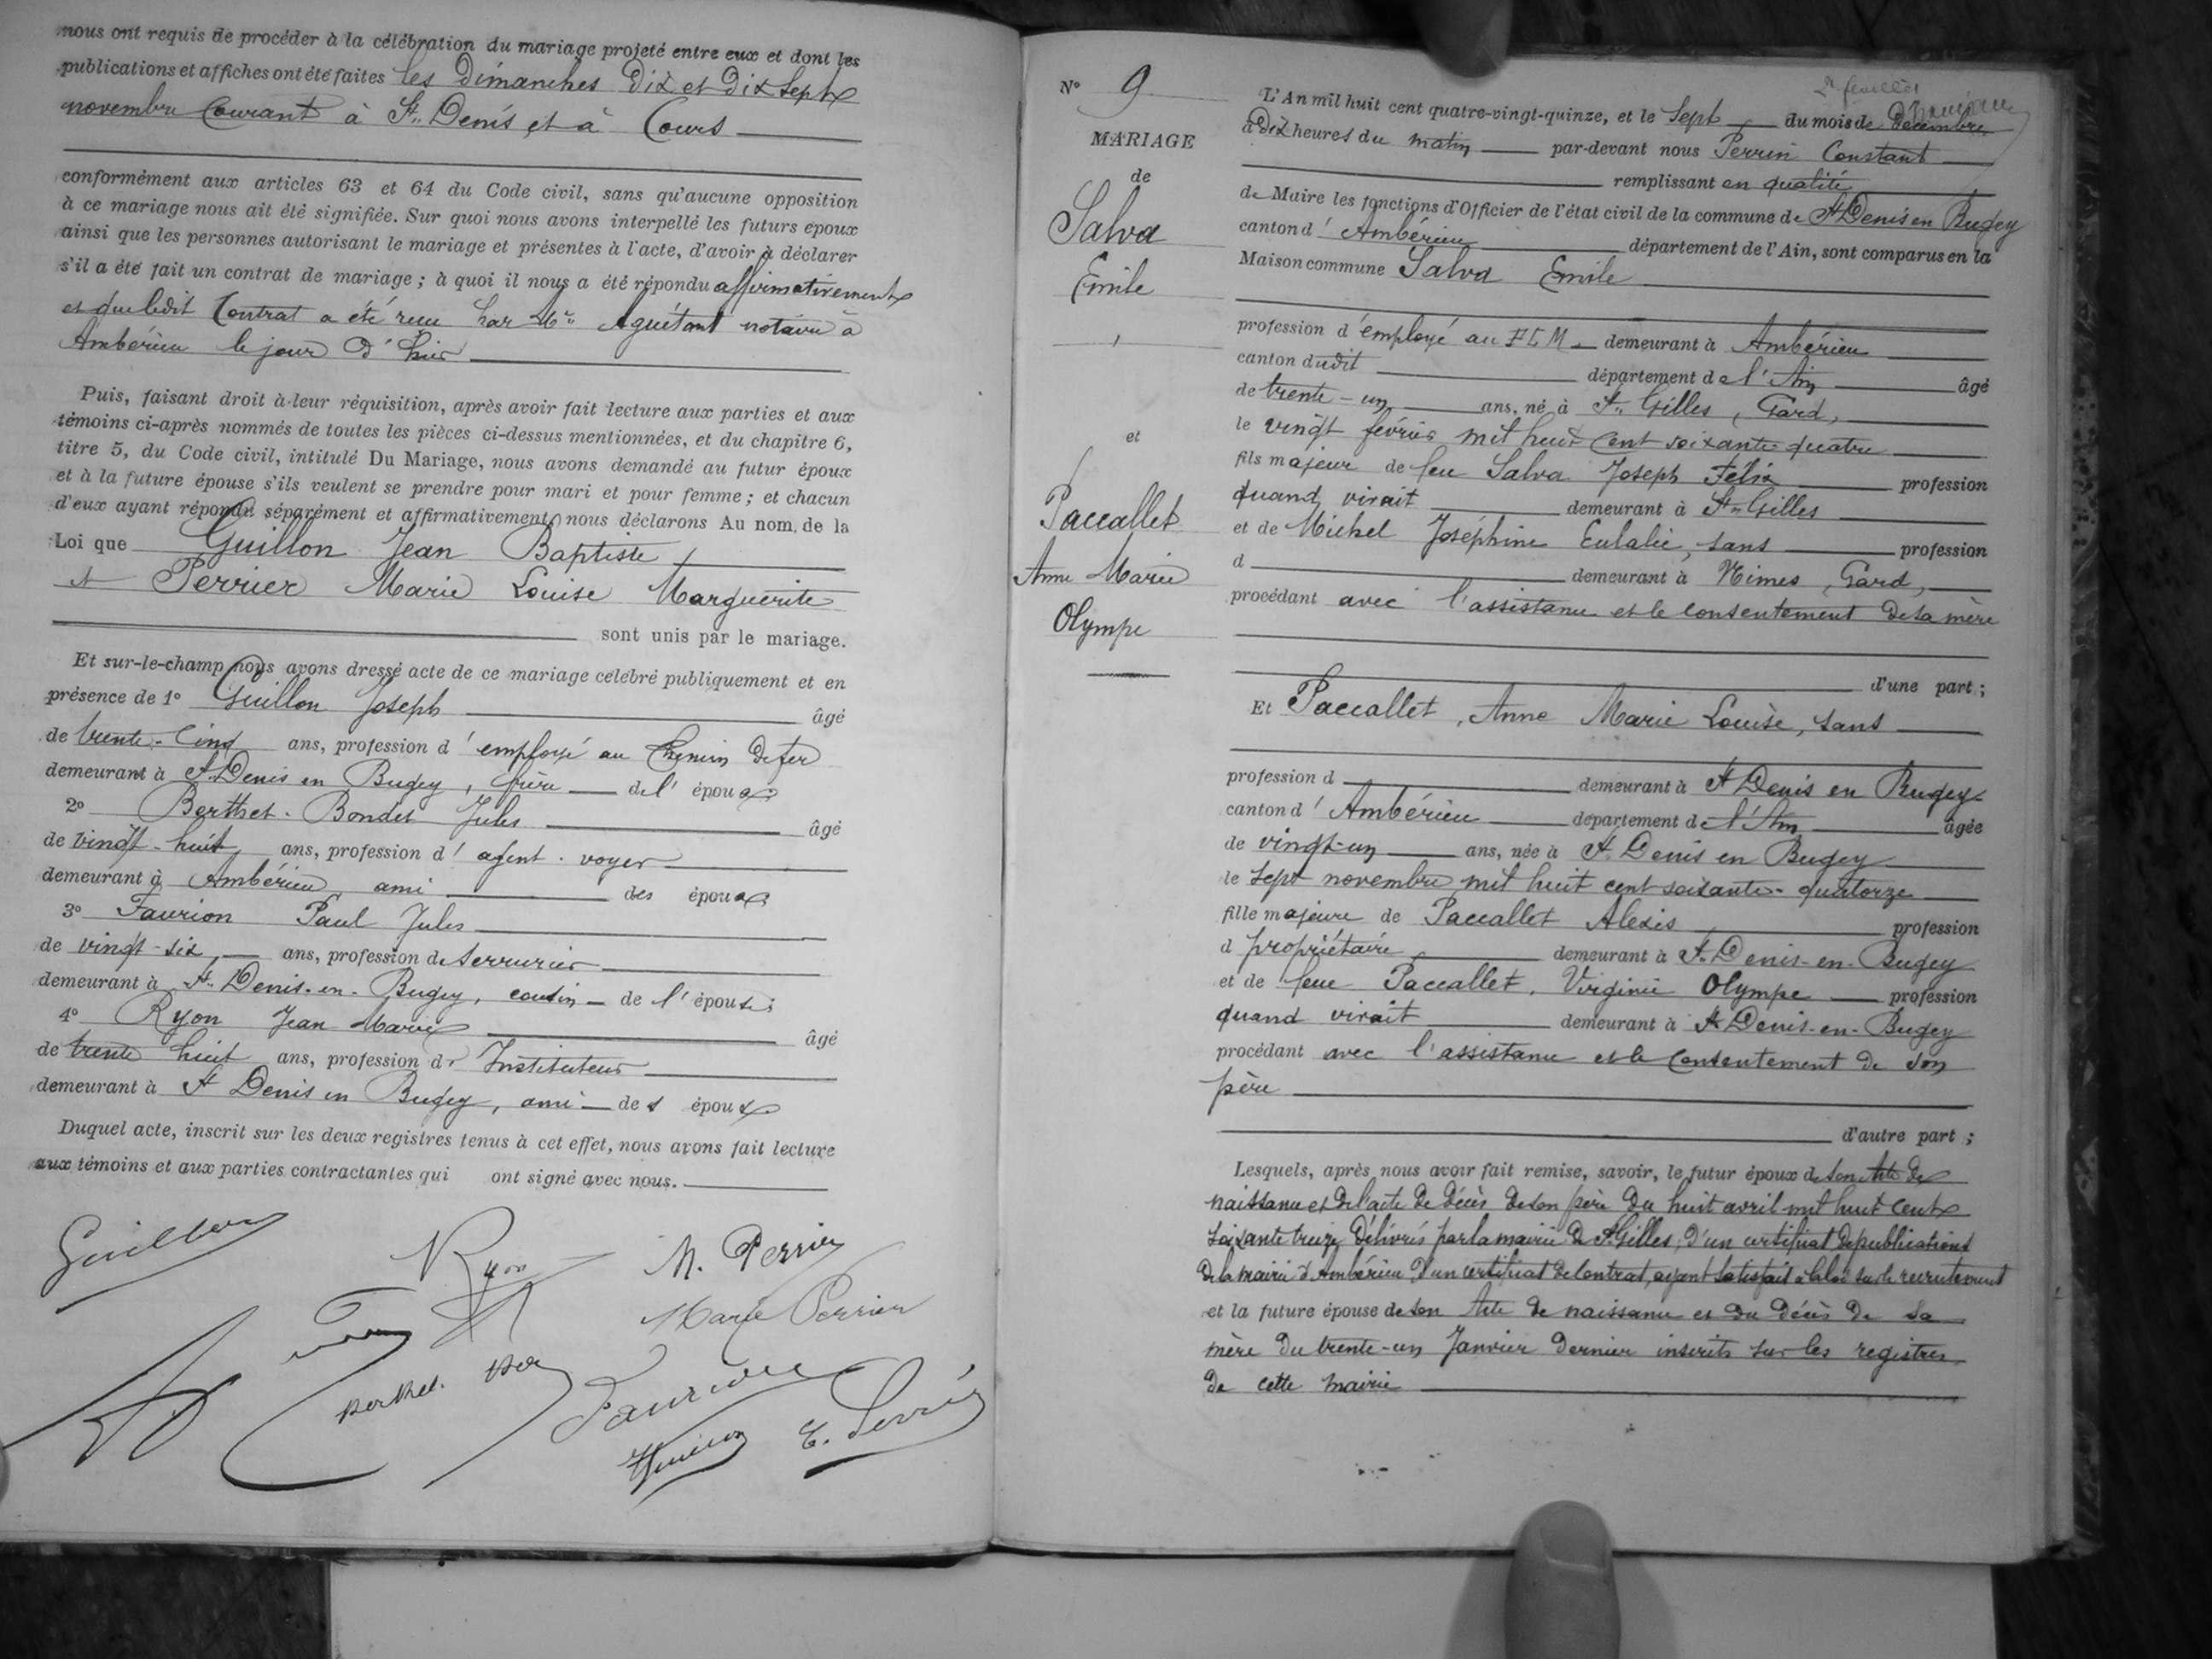 nous ont requis de procéder à la célébration du mariage projeté entre eux et dont les
publications et affiches ont été faites les Dimanches Dix et Dix Sept
novembre Courant à St Denis et à Cours
conformément aux articles 63 et 64 du Code civil, sans qu'aucune opposition
à ce mariage nous ait été signifiée. Sur quoi nous avons interpellé les futurs époux
ainsi que les personnes autorisant le mariage et présentes à l'acte, d'avoir à déclarer
s'il a été fait un contrat de mariage ; à quoi il nous a été répondu affirmativement
et que ledit Contrat a été reçu par Me Aguétant notaire à
Ambérieu le jour d'hier
Puis, faisant droit à leur réquisition, après avoir fait lecture aux parties et aux
témoins ci-après nommés de toutes les pièces ci-dessus mentionnées, et du chapitre 6,
titre 5, du Code civil, intitulé Du Mariage, nous avons demandé au futur époux
et à la future épouse s'ils veulent se prendre pour mari et pour femme ; et chacun
d'eux ayant répondu séparément et affirmativement, nous déclarons Au nom de la
Loi que Guillon Jean Baptiste
et Perrier Marie Louise Marguerite
sont unis par le mariage.
Et sur-le-champ nous avons dressé acte de ce mariage célébré publiquement et en
présence de 1° Guillon Joseph âgé
de trente-cinq ans, profession d'employé au Chemin de fer
demeurant à St Denis en Bugey, frère de l'époux
2° Berthet-Bondet Jules âgé
de vingt-huit ans, profession d'agent-voyer
demeurant à Ambérieu ami des époux
3° Faurion Paul Jules
de vingt-six, ans, profession de serrurier
demeurant à St Denis-en-Bugey, cousin de l'épouse
4° Ryon Jean Marie âgé
de trente huit ans, profession d' Instituteur
demeurant à St Denis en Bugey, ami des époux
Duquel acte, inscrit sur les deux registres tenus à cet effet, nous avons fait lecture
aux témoins et aux parties contractantes qui ont signé avec nous.
Guillon
Ryon
M. Perrier
Marie Perrier
Berthet
Faurion
N° 9
MARIAGE
de
Salva
Emile
et
Paccallet
Anne Marie
Olympe
2e feuillet
L'An mil huit cent quatre-vingt-quinze, et le Sept du mois de Décembre
à Dix heures du matin par-devant nous Perrin Constant
remplissant en qualité
de Maire les fonctions d'Officier de l'état civil de la commune de St Denis en Bugey
canton d'Ambérieu département de l'Ain, sont comparus en la
Maison commune Salva Emile
profession d'employé au PLM demeurant à Ambérieu
canton dudit département de l'Ain âgé
de trente-un ans, né à St Gilles, Gard,
le vingt février mil huit cent soixante-quatre
fils majeur de feu Salva Joseph Félix profession
quand vivait demeurant à St Gilles
et de Michel Joséphine Eulalie, sans profession
d demeurant à Nimes, Gard,
procédant avec l'assistance et le consentement de sa mère
d'une part ;
Et Paccallet, Anne Marie Louise, sans
profession d demeurant à St Denis en Bugey
canton d'Ambérieu département de l'Ain âgée
de vingt-un ans, née à St Denis en Bugey
le sept novembre mil huit cent soixante-quatorze
fille majeure de Paccallet Alexis profession
d propriétaire demeurant à St Denis-en-Bugey
et de feue Paccallet, Virginie Olympe profession
quand vivait demeurant à St Denis-en-Bugey
procédant avec l'assistance et le consentement de son
père
d'autre part ;
Lesquels, après nous avoir fait remise, savoir, le futur époux de son Acte de
naissance et de l'acte de décès de son père du huit avril mil huit cent
soixante treize délivrés par la mairie de St Gilles, d'un certificat de publications
de la mairie d'Ambérieu, d'un certificat de contrat, ayant satisfait à la loi sur le recrutement
et la future épouse de son Acte de naissance et du décès de sa
mère du trente-un Janvier dernier inscrits sur les registres
de cette mairie